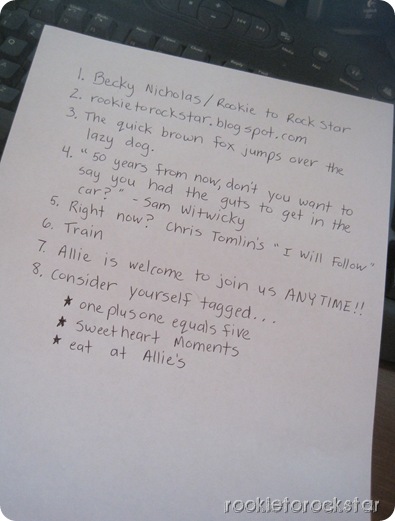 1. Becky Nicholas/Rookie to Rock Star
2. rookietorockstar.blogspot.com
3. The quick brown fox jumps over the
lazy dog.
4. "50 years from now, don't you want to
say you had the guts to get in the
car?" - Sam Witwicky
5. Right now? Chris Tomlin's "I Will Follow"
6. Train
7. Allie is welcome to join us ANYTIME!!
8. Consider yourself tagged...
★ one plus one equals five
★ Sweetheart Moments
★ eat at Allie's
rookietorockstar